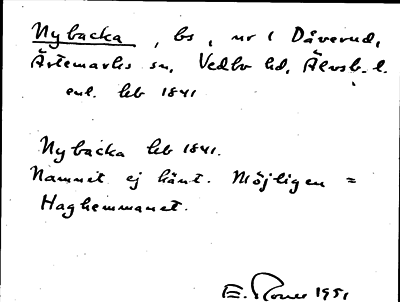 Nybacka, bs, nr 1 Dåverud,
Ärtemarks sn, Vedbo hd, Älvsb. l.
enl. hb 1841
Nybacka hb 1841.
Namnet ej känt. Möjligen =
Haghemmanet.
E. 1951